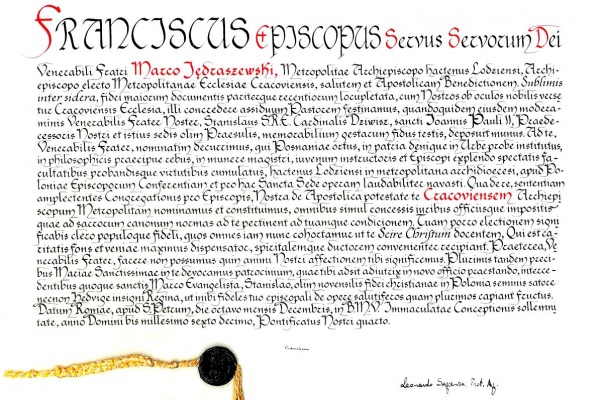 FRANCISCUS EPISCOPUS Servus Servorum Dei
Venerabili Fratri Marco Jędraszewski, Metropolitae Archiepiscopo hactenus Lodziensi, Archi-
episcopo electo Metropolitanae Ecclesiae Cracoviensis, salutem et Apostolicam Benedictionem. Sublimis
inter sidera, fidei maiorum documentis patriaeque recentiorum locupletata, cum Nostros ob oculos nobilis verse-
tur Cracoviensis Ecclesia, illi concedere assiduum Pastorem festinamus, quandoquidem eiusdem modera-
minis Venerabilis Frater Noster, Stanislaus S.R.E. Cardinalis Dziwisz, sancti Ioannis Pauli II, Praede-
cessoris Nostri et istius sedis olim Praesulis, memorabilium gestarum fidus testis, deposuit munus. Ad te,
Venerabilis Frater, nominatim decurrimus, qui Posnaniae ortus, in patria denique in Urbe probe institutus,
in philosophicis praecipue rebus, in munere magistri, iuvenum instructoris et Episcopi explendo spectatis fa-
cultatibus probandisque virtutibus cumulatus, hactenus Lodziensi in metropolitana archidioecesi, apud Po-
loniae Episcoporum Conferentiam et pro hac Sancta Sede operam laudabiliter navasti. Qua de re, sententiam
amplectentes Congregationis pro Episcopis, Nostra de Apostolica potestate te Cracoviensem Archiepi
scopum Metropolitam nominamus et constituimus, omnibus simul concessis iuribus officiisque impositis
quae ad sacrorum canonum normas ad te pertinent ad tuamque condicionem. Curam porro electionem signi
ficabis clero populoque fideli, quos omnes iam nunc cohortamur ut te dexre Christum docentem, Qui est ca-
ritatis fons et veniae maximus dispensator, spiritalemque ductorem convenienter recipiant. Praeterea, Ve
nerabilis Frater, facere non possumus quin animi Nostri affectionem tibi significemus. Plurimis tandem preci-
bus Mariae Sanctissimae in te devocamus patrocinium, quae tibi adsit adiutrix in novo officio praestando, interce-
dentibus quoque sanctis Marco Evangelista, Stanislao, olim novensilis fidei christianae in Polonia seminis satore
necnon Hedvige insigni Regina, ut inibi fideles tuo episcopali de opere salutiferos quam plurimos capiant fructus.
Datum Romae, apud S. Petrum, die octavo mensis Decembris, in B.M.V. Immaculatae Conceptionis sollemni
tate, anno Domini bis millesimo sexto decimo, Pontificatus Nostri quarto.
Franciscus
Leonardo Sapienza Prot. Ap.